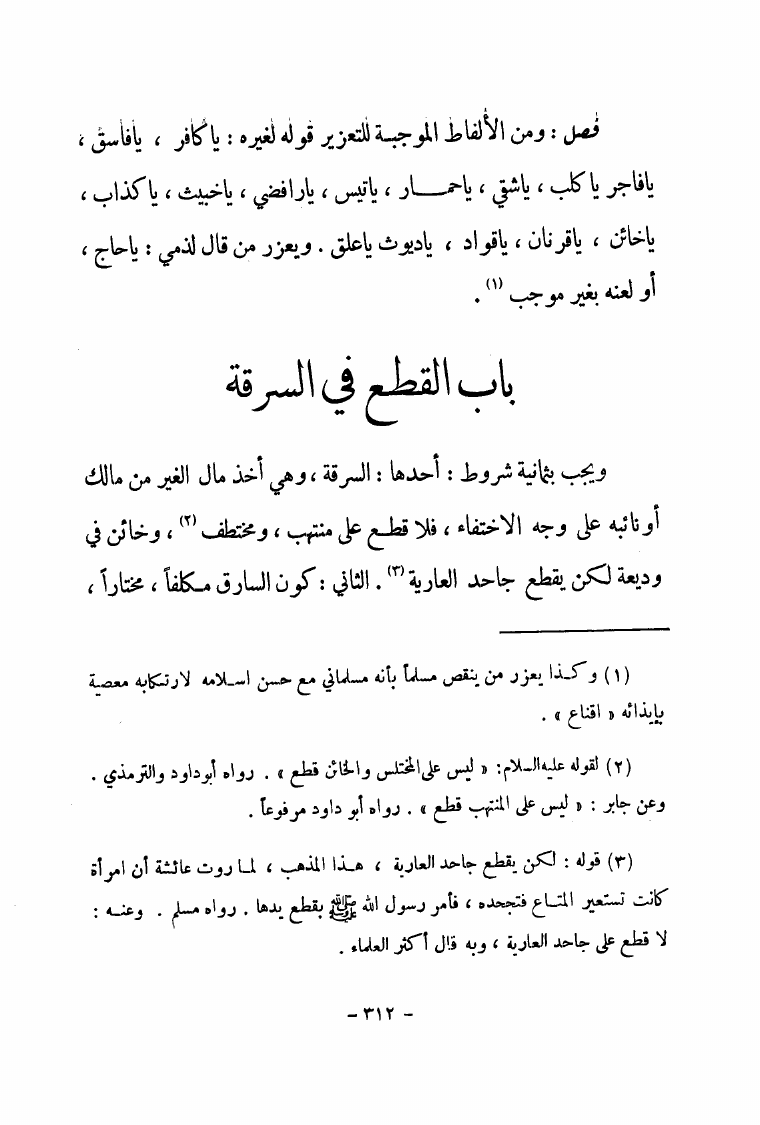 فصل : ومن الألفاظ الموجبة للتعزير قوله لغيره : ياكافر ، يافاسق ،
يافاجر ياكلب ، ياشقي ، ياحمـــار ، ياتيس ، يارافضي ، ياخبيث ، ياكذاب ،
ياخائن ، ياقرنان ، ياقواد ، ياديوث ياعلق . ويعزر من قال لذمي : ياحاج ،
أو لعنه بغير موجب (١) .
باب القطع في السرقة
ويجب بثمانية شروط : أحدها : السرقة ، وهي أخذ مال الغير من مالك
أو نائبه على وجه الاختفاء ، فلا قطع على منتهب ، ومختطف (٢) ، وخائن في
وديعة لكن يقطع جاحد العارية (٣) . الثاني : كون السارق مكلفاً ، مختاراً ،
(١) وكـذا يعزر من ينقص مسلماً بأنه مسلماني مع حسن اسـلامه لارتكابه معصية
بإيذائه « اقناع » .
(٢) لقوله عليه السلام : « ليس على المختلس والخائن قطع » . رواه أبوداود والترمذي .
وعن جابر : « ليس على المنتهب قطع » . رواه أبو داود مرفوعاً .
(٣) قوله : لكن يقطع جاحد العارية ، هـذا المذهب ، لمـا روت عائشة أن امرأة
كانت تستعير المتـاع فتجحده ، فأمر رسول الله ﷺ بقطع يدها . رواه مسلم . وعنـه :
لا قطع على جاحد العارية ، وبه قال أكثر العلماء .
- ٣١٢ -